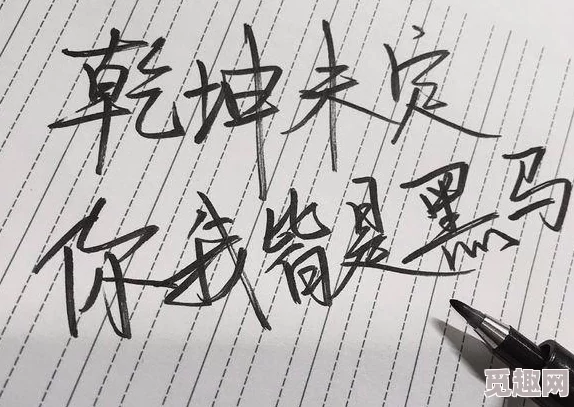 乾坤未定
你我皆是黑马
觅趣网